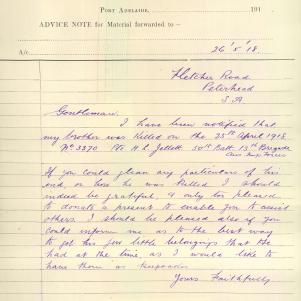 Port Adelaide, 191
ADVICE NOTE for Material forwarded to –
A/c
26/5/18
Fletcher Road
Peterhead
S.A
Gentlemen
I have been notified that
my brother was killed on the 25th April 1918
No 3370 Pte H L Jellett 50th Batt 13th Brigade
Aus Imp Forces
If you could glean any particulars of his
end, or how he was killed I should
indeed be grateful, & only too pleased
to donate a present to enable you to assist
others. I should be pleased also if you
could inform me as to the best way
to get his few little belongings that he
had at the time, as I would like to
have them as keepsakes
Yours Faithfully